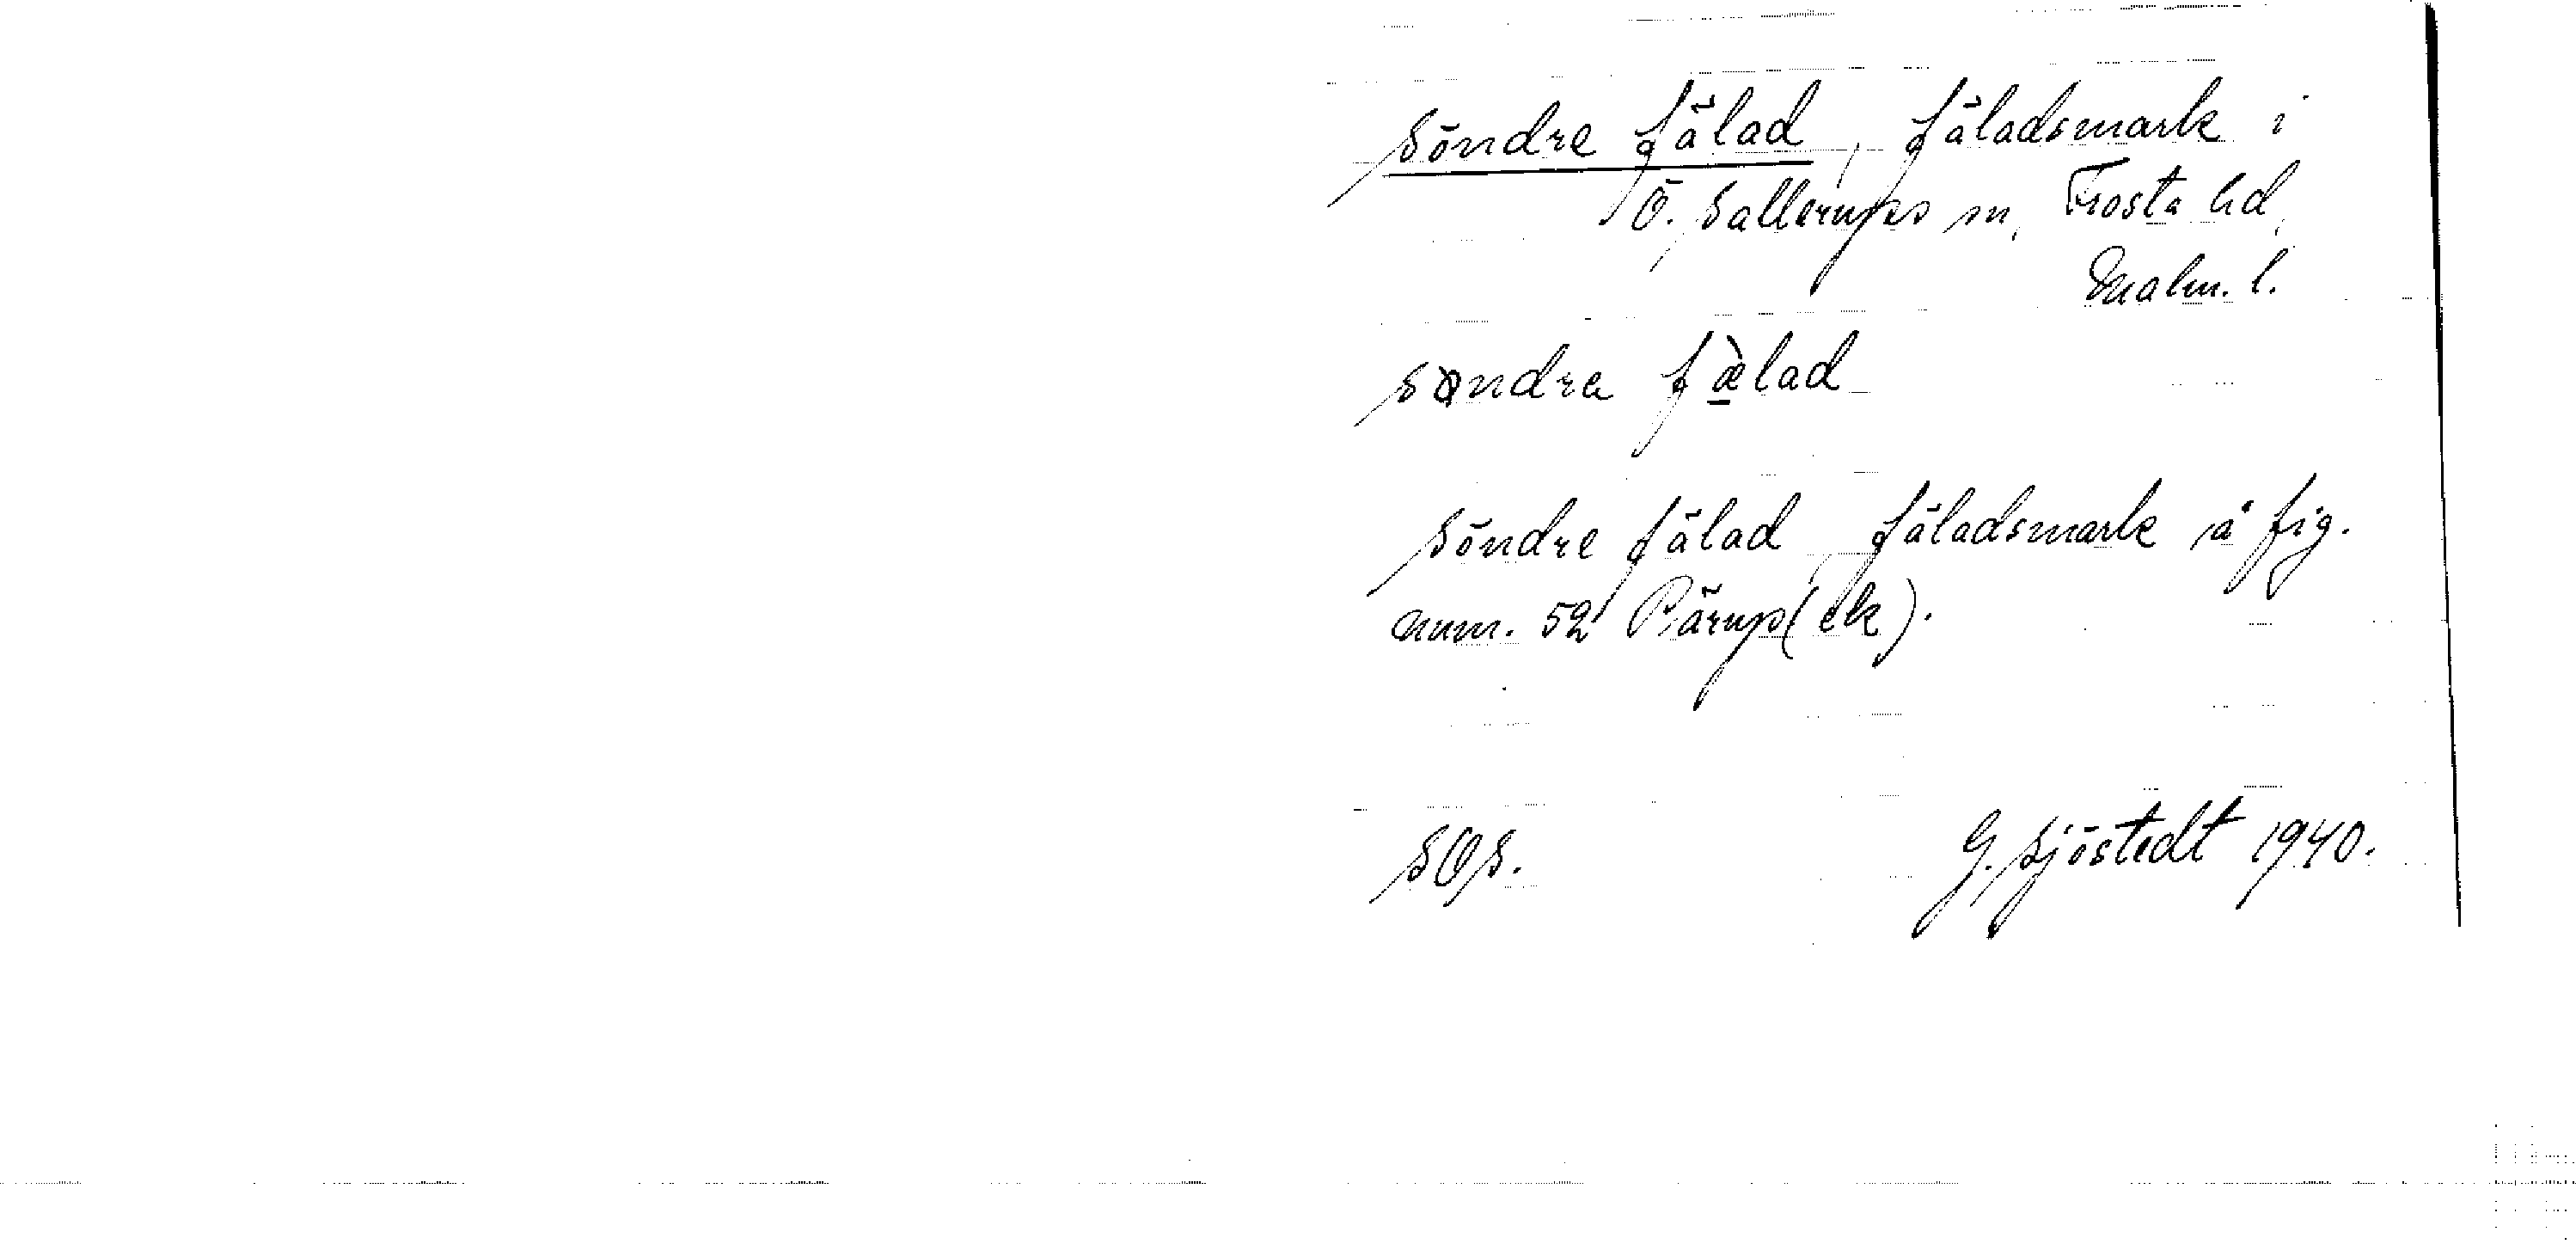 Söndre fälad, fäladsmark i
Ö. Sallerups sn, Frosta hd,
Malm. l.
søndra fæ̀lad
Söndre fälad, fäladsmark å fig.
num. 52 Pärup (ek).
SOS. G. Sjöstedt 1940.